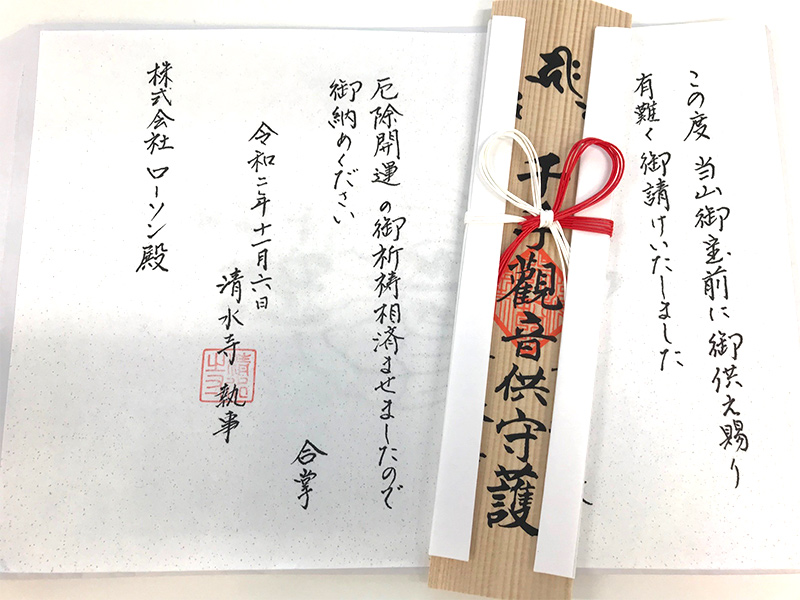 この度 当山御宝前に御供え賜り
有難く御請けいたしました
千手觀音供守護
厄除開運の御祈祷相済ませましたので
御納めください
合掌
令和二年十一月六日
清水寺 執事
株式会社 ローソン殿